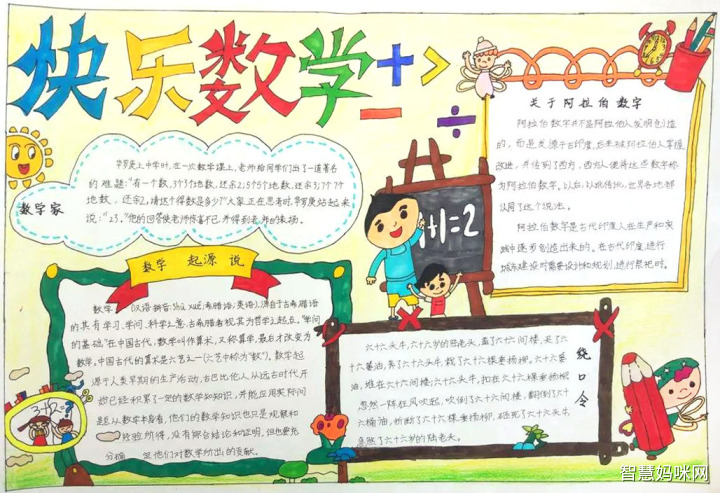 快乐数学
+ >
− ÷
数学家
华罗庚上中学时,在一次数学课上,老师给同学们出了一道著名
的难题:"有一个数,3个3个地数,还余2;5个5个地数,还余3;7个7个
地数,还余2,请这个得数是多少?"大家正在思考时,华罗庚站起来
说:"23。"他的回答使老师惊喜不已,并得到老师的表扬。
关于阿拉伯数字
阿拉伯数字并不是阿拉伯人发明创造
的,而是发源于古印度,后来被阿拉伯人掌握
改进,并传到了西方,西方人便将这些数字称
为阿拉伯数字。以后,以讹传讹,世界各地都
认同了这个说法。
阿拉伯数字是古代印度人在生产和实
践中逐步创造出来的。在古代印度,进行
城市建设时需要设计和规划,进行祭祀时。
1+1=2
数学 起源 说
数学 (汉语拼音:shù xué;希腊语;英语),源自于古希腊语
的 其有学习、学问、科学之意.古希腊者视其为哲学之起点,"学问
的基础"。在中国古代,数学叫作算术,又称算学,最后才改变为
数学。中国古代的算术是六艺之一(六艺中称为"数")。数学起
源于人类早期的生产活动,古巴比伦人从远古时代开
始已经积累了一定的数学知识,并能应用实际问
题.从数学本身看,他们的数学知识也只是观察和
经验所得,没有综合结论和证明,但也要充
分确 定他们对数学所出的贡献。
3+2=?
绕口令
六十六头牛,六十六岁的陆老头,盖了六十六间楼,买了六
十六篓油,养了六十六头牛,栽了六十六棵垂杨柳。六十六篓
油,堆在六十六间楼;六十六头牛,扣在六十六棵垂杨柳
忽然一阵狂风吹起,吹倒了六十六间楼,翻倒了六十
六桶油,折断了六十六棵垂杨柳,砸死了六十六头牛
急煞了六十六岁的陆老头。
智慧妈咪网